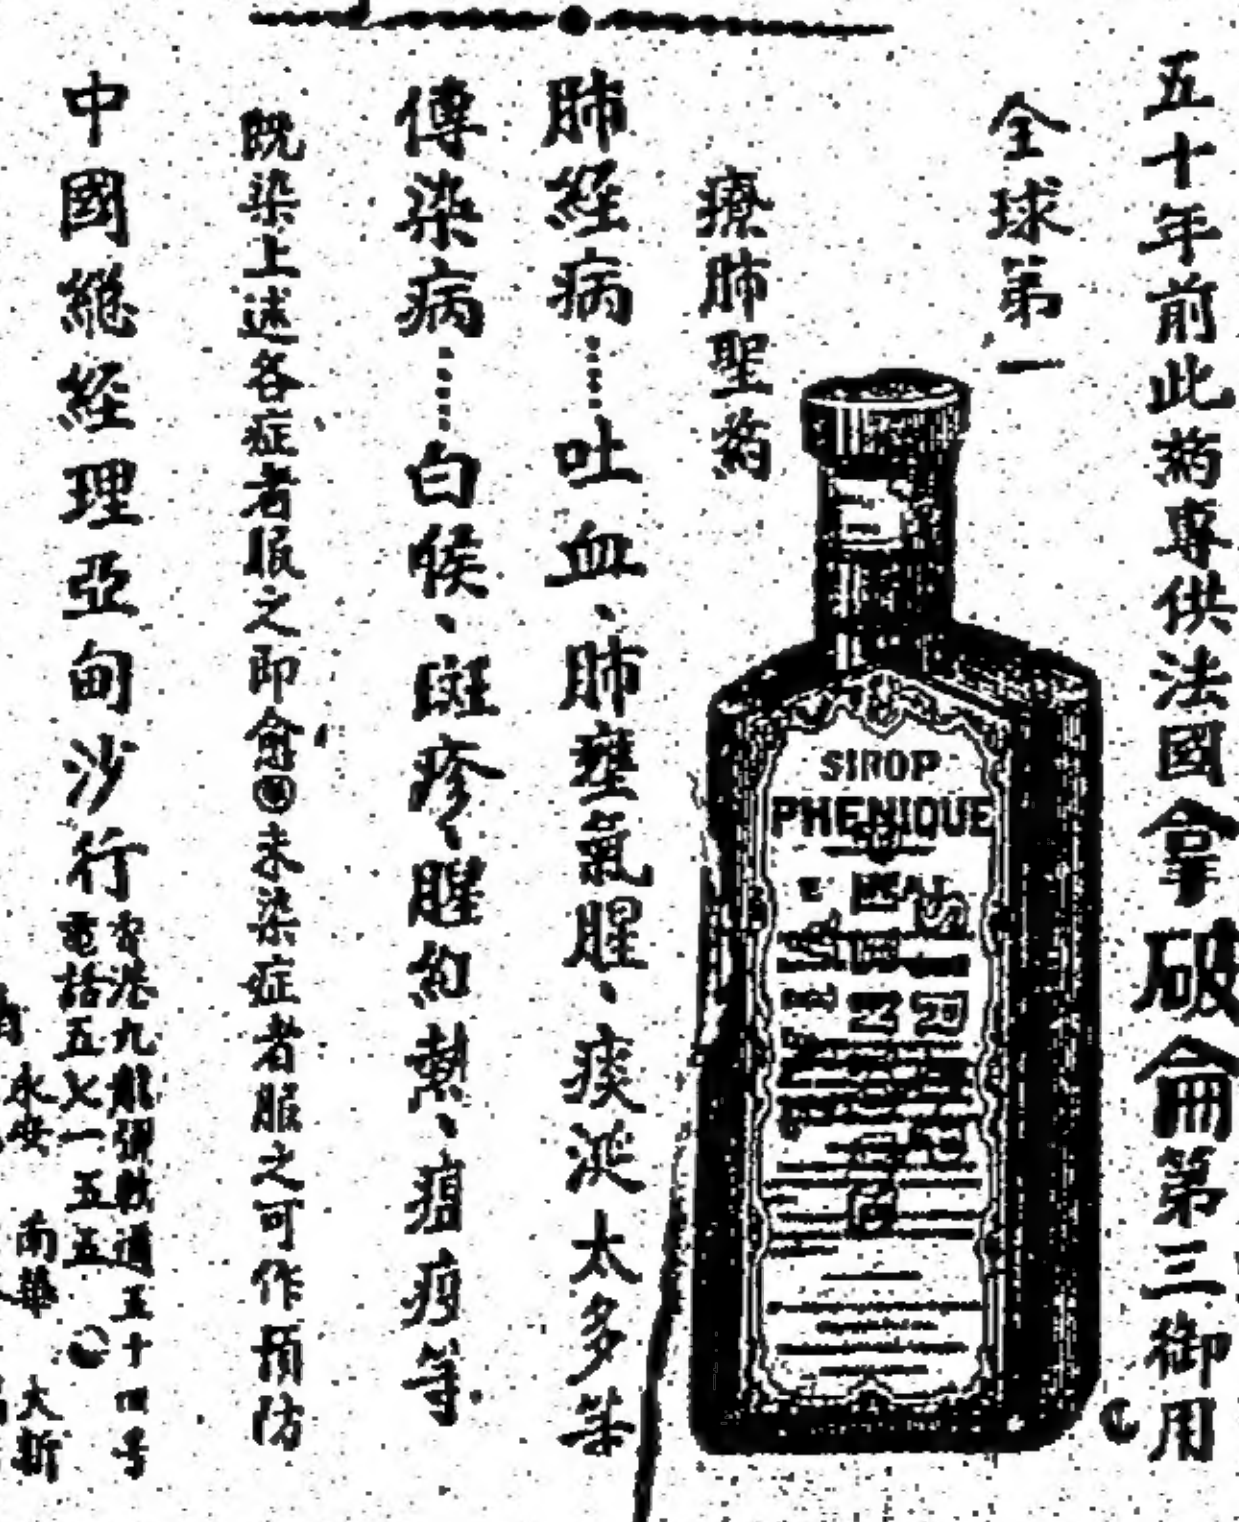 五十年前此葯專供法國拿破侖第三御用
全球第一
療肺聖葯
SIROP
PHENIQUE
肺經病……吐血、肺壅氣腥、痰涎太多等
傳染病……白喉、斑疹、腥紅熱、瘟疫等
既染上述各症者服之即愈◉未染症者服之可作預防
中國總經理亞甸沙行
香港九龍彌敦道五十四号
電話五七一五五
永安 南華 大新